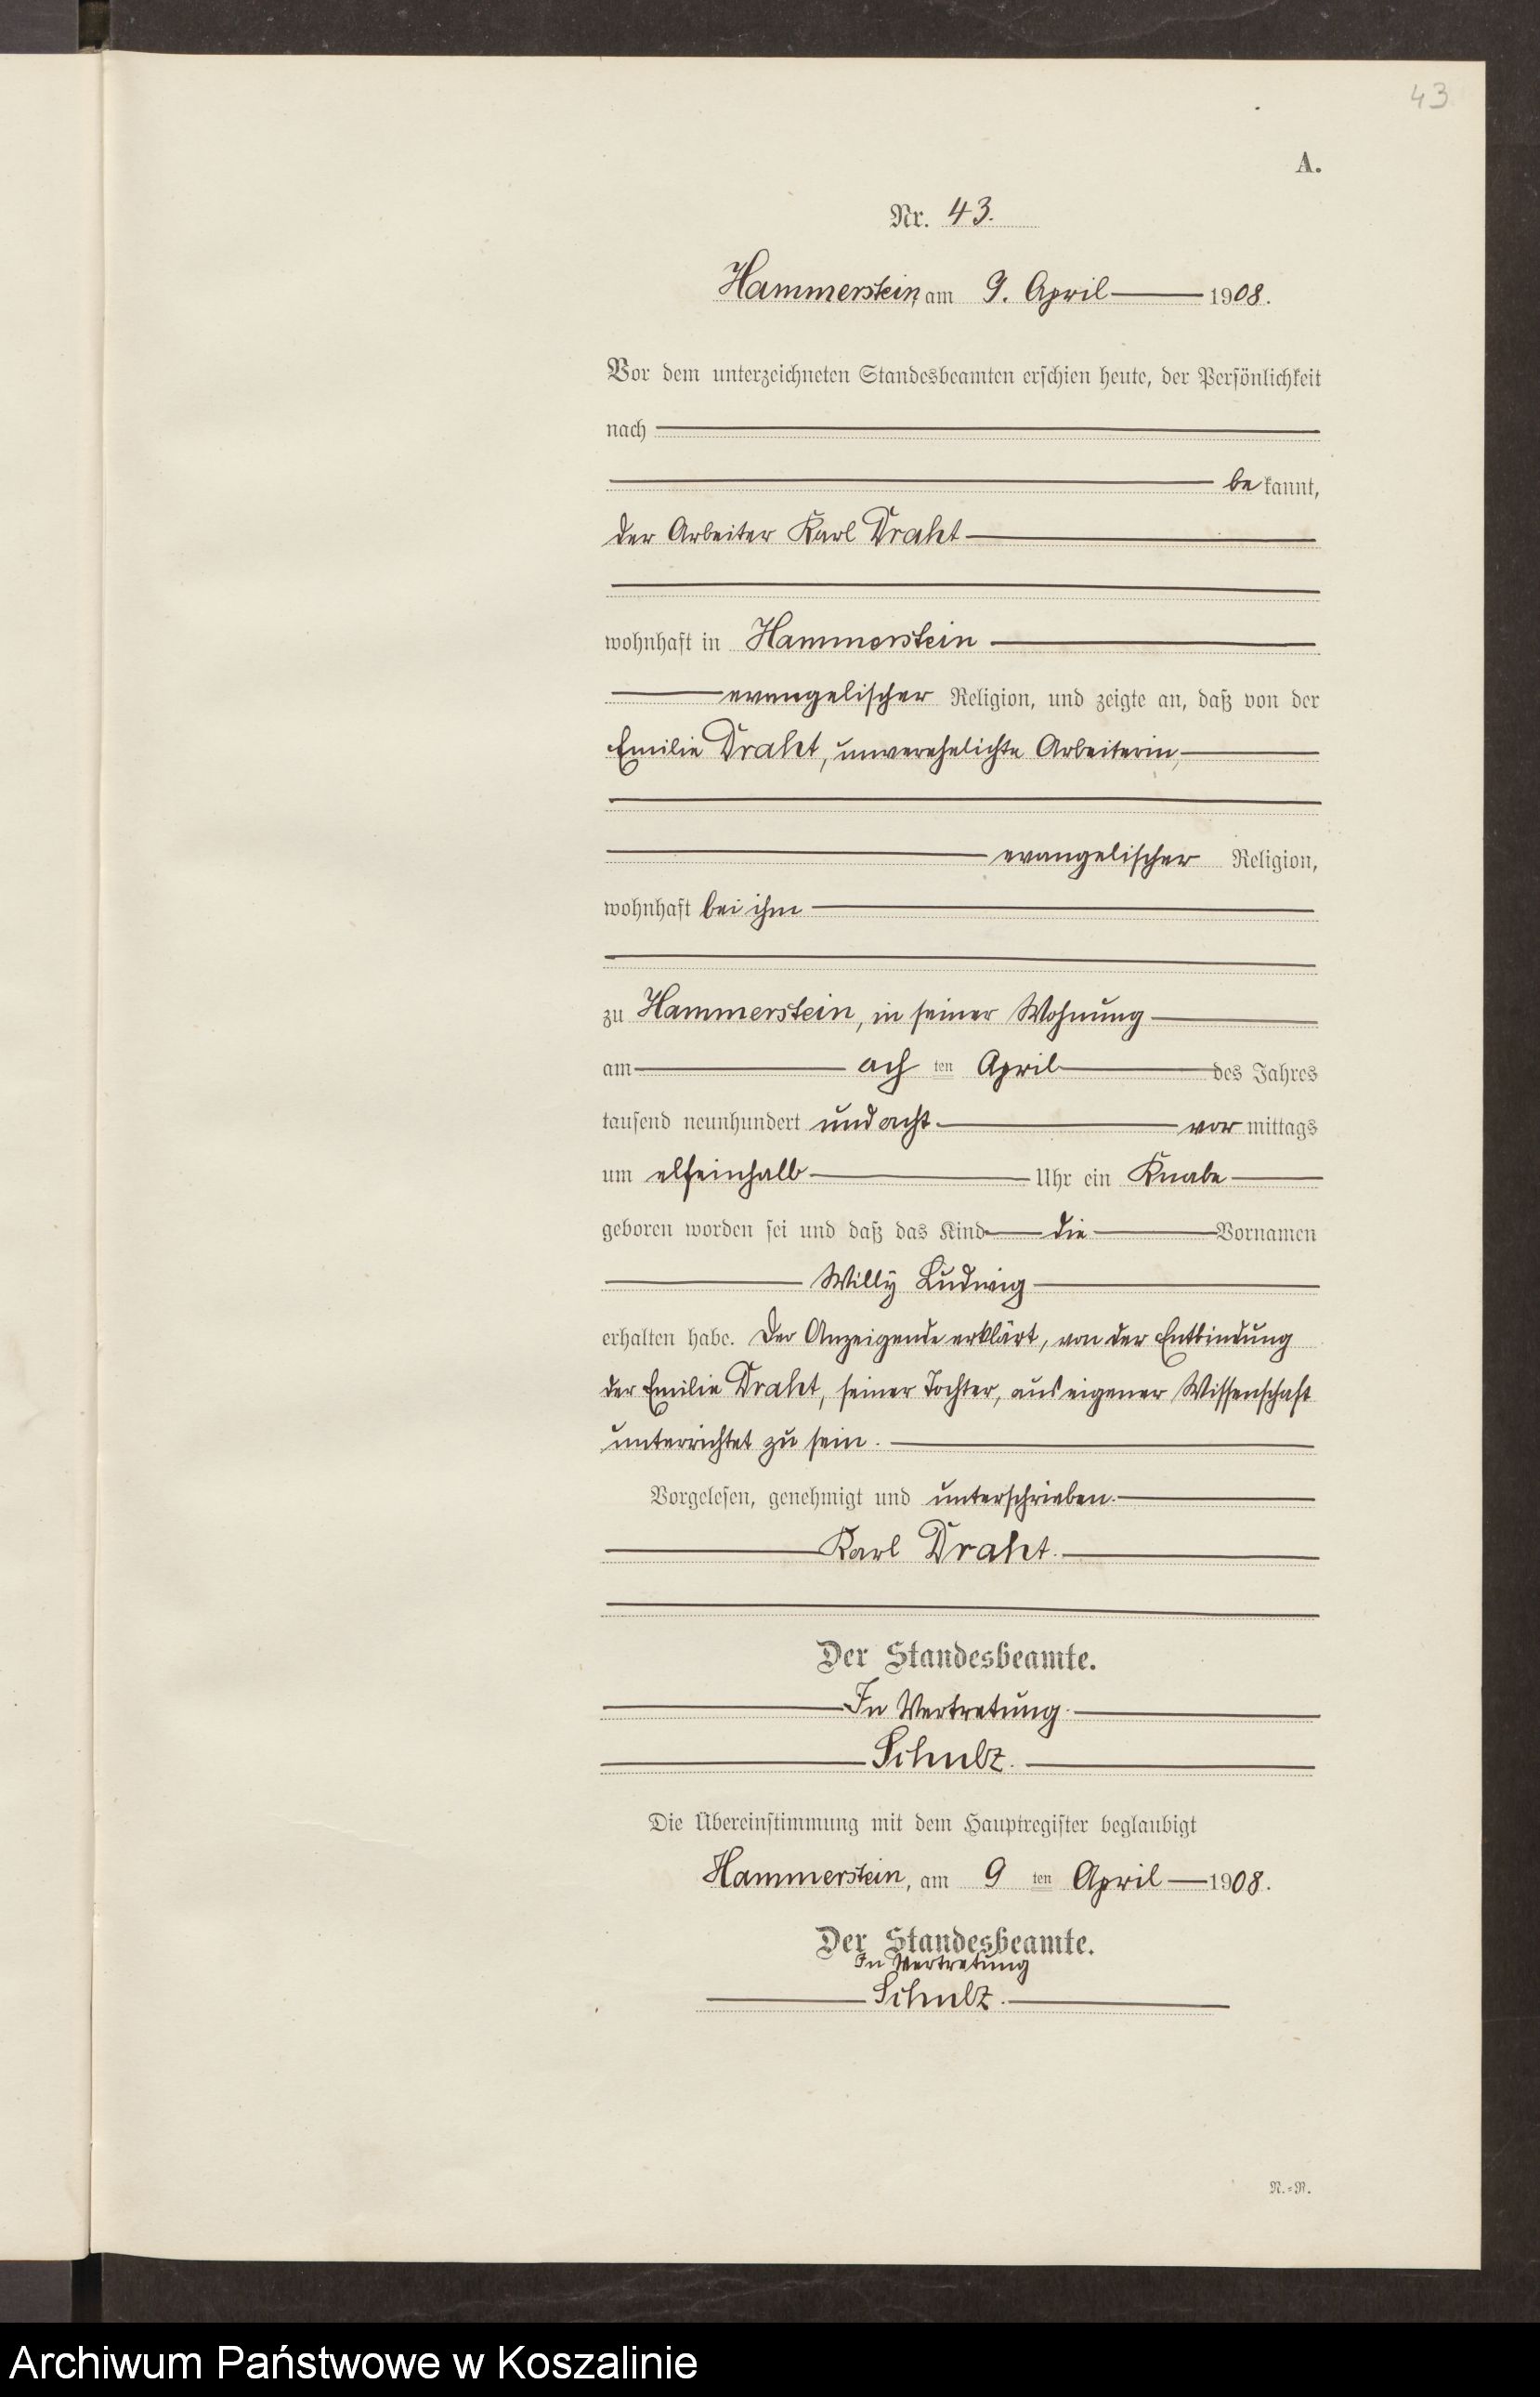 43
A.
Nr. 43.
Hammerstein, am 9. April 1908.
Vor dem unterzeichneten Standesbeamten erschien heute, der Persönlichkeit
nach
be kannt,
der Arbeiter Karl Draht
wohnhaft in Hammerstein
evangelischer Religion, und zeigte an, daß von der
Emilie Draht, unverehelichte Arbeiterin,
evangelischer Religion,
wohnhaft bei ihm
zu Hammerstein, in seiner Wohnung
am ach ten April des Jahres
tausend neunhundert und acht vor mittags
um elfeinhalb Uhr ein Knabe
geboren worden sei und daß das Kind die Vornamen
Willy Ludwig
erhalten habe. Der Anzeigende erklärt, von der Entbindung
der Emilie Draht, seiner Tochter, aus eigener Wissenschaft
unterrichtet zu sein.
Vorgelesen, genehmigt und unterschrieben.
Karl Draht.
Der Standesbeamte.
In Vertretung.
Schulz.
Die Übereinstimmung mit dem Hauptregister beglaubigt
Hammerstein, am 9 ten April 1908.
Der Standesbeamte.
In Vertretung
Schulz.
N.=R.
Archiwum Państwowe w Koszalinie